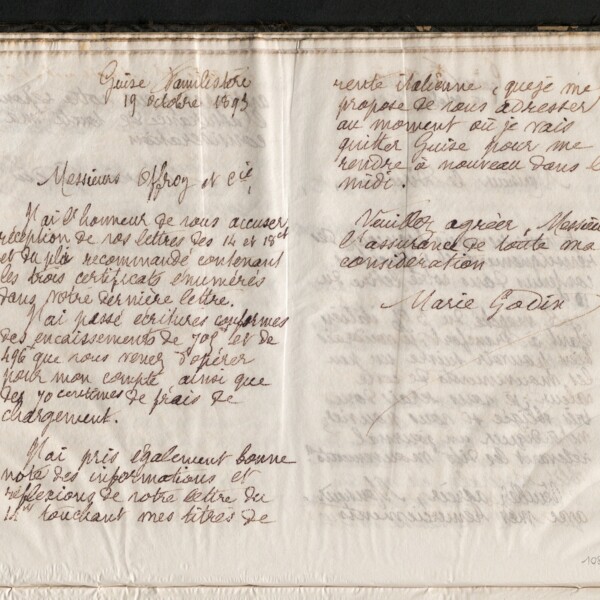 Guise Familistère
19 octobre 1893
Messieurs Offroy et Cie,
J'ai l'honneur de vous accuser
réception de vos lettres des 14 et 18 ct
et du pli recommandé contenant
les trois certificats énumérés
dans votre dernière lettre.
J'ai passé écritures conformes
des encaissements de 705 et de
496 que vous venez d'opérer
pour mon compte, ainsi que
des 70 centimes de frais de
chargement.
J'ai pris également bonne
note des informations et
réflexions de votre lettre du
14 touchant mes titres de
rente italienne, que je me
propose de vous adresser
au moment où je vais
quitter Guise pour me
rendre à nouveau dans le
midi.
Veuillez agréer, Messieurs
l'assurance de toute ma
considération
Marie Godin